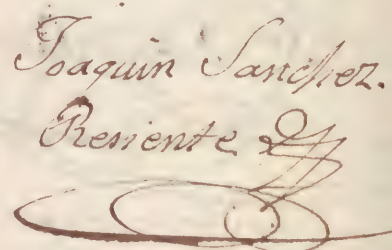 Joaquin Sanchez.
Reniente